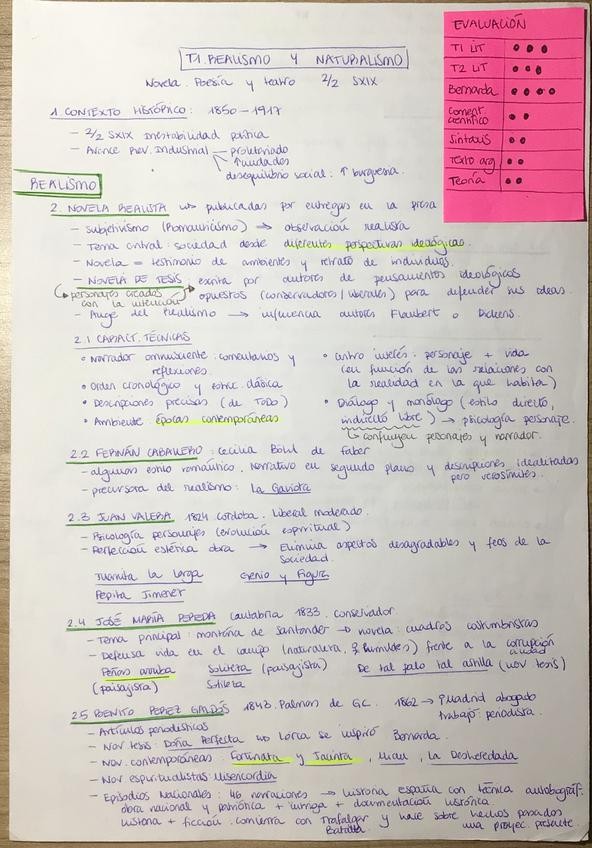 T.1. REALISMO Y NATURALISMO
Novela. Poesía y teatro 2/2 SXIX
EVALUACIÓN
T1 LIT
T2 LIT
Bernarda
Coment. científico
Sintaxis
Texto arg
Teoría
1. CONTEXTO HISTÓRICO: 1850-1917
- 2/2 SXIX Inestabilidad política
- Avance Rev. Industrial → proletariado
↑ciudades
desequilibrio social: ↑ burguesía.
REALISMO
2. NOVELA REALISTA → publicadas por entregas en la prensa
- Subjetivismo (Romanticismo) → observación realista
- Tema central: sociedad desde diferentes perspectivas ideológicas.
- Novela = testimonio de ambientes y retrato de individuos.
- NOVELA DE TESIS: escrita por autores de pensamientos ideológicos
(personajes creados con la intención) opuestos (conservadores/liberales) para defender sus ideas.
- Auge del Realismo → influencia autores Flaubert o Dickens.
2.1 CARACT. TÉCNICAS
• Narrador omnisciente: comentarios y reflexiones.
• Orden cronológico y estruc. clásica
• Descripciones precisas (de TODO)
• Ambiente: épocas contemporáneas
• Centro interés: personaje + vida
(en función de las relaciones con
la realidad en la que habita)
• Diálogo y monólogo (estilo directo,
indirecto libre) → psicología personaje.
↳ confluyen personajes y narrador.
2.2 FERNÁN CABALLERO: Cecilia Böhl de Faber
- algunos estilo romántico. Narrativo en segundo plano y descripciones idealizadas
pero verosímiles.
- precursora del realismo: La Gaviota
2.3 JUAN VALERA 1824 Córdoba. Liberal moderado.
- Psicología personajes (evolución espiritual)
- Perfección estética obra → Elimina aspectos desagradables y feos de la
sociedad.
Juanita la Larga Genio y Figura
Pepita Jiménez
2.4 JOSÉ MARÍA PEREDA Cantabria 1833. conservador.
- Tema principal: montaña de Santander → novela: cuadros costumbristas
- Defensa vida en el campo (naturaleza, humildes) frente a la corrupción
ciudad
Peñas arriba Sotileza (paisajista) De tal palo tal astilla (nov tesis)
(paisajista) Sotileza
2.5 BENITO PÉREZ GALDÓS 1843. Palmas de GC. 1862 → Madrid abogado
trabajo periodista.
- Artículos periodísticos
- Nov. tesis: Doña Perfecta → Lorca se inspiró Bernarda.
- Nov. contemporáneas: Fortunata y Jacinta, Miau, La Desheredada
- Nov espiritualistas Misericordia
- Episodios Nacionales: 46 narraciones → historia españa con técnica autobiográf.
obra nacional y patriótica + intriga + documentación histórica.
historia + ficción. comienza con Trafalgar y hace sobre hechos pasados
Batalla una proyec. presente.